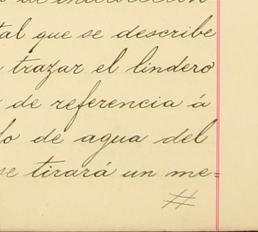 tal que se describe
trazar el lindero
de referencia á
lo de agua del
se tirará un me=
#